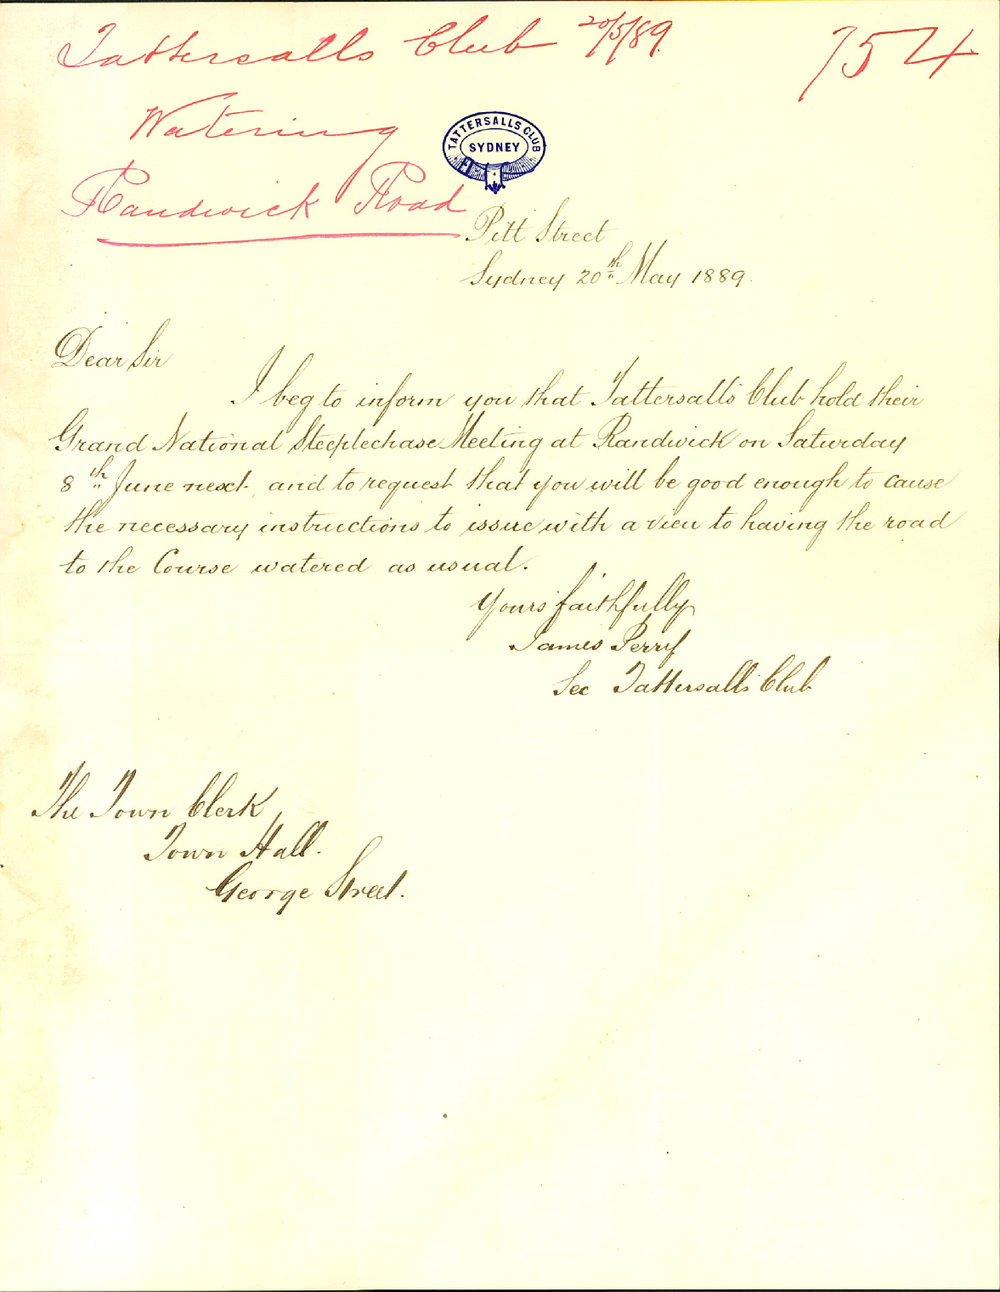 Tattersalls Club 20/5/89.
754
Watering
Randwick Road
TATTERSALLS CLUB
SYDNEY
Pitt Street
Sydney 20th May 1889.
Dear Sir
I beg to inform you that Tattersall's Club hold their
Grand National Steeplechase Meeting at Randwick on Saturday
8th June next, and to request that you will be good enough to cause
the necessary instructions to issue with a view to having the road
to the Course watered as usual.
Yours faithfully
James Perry
Sec Tattersalls Club
The Town Clerk
Town Hall.
George Street.